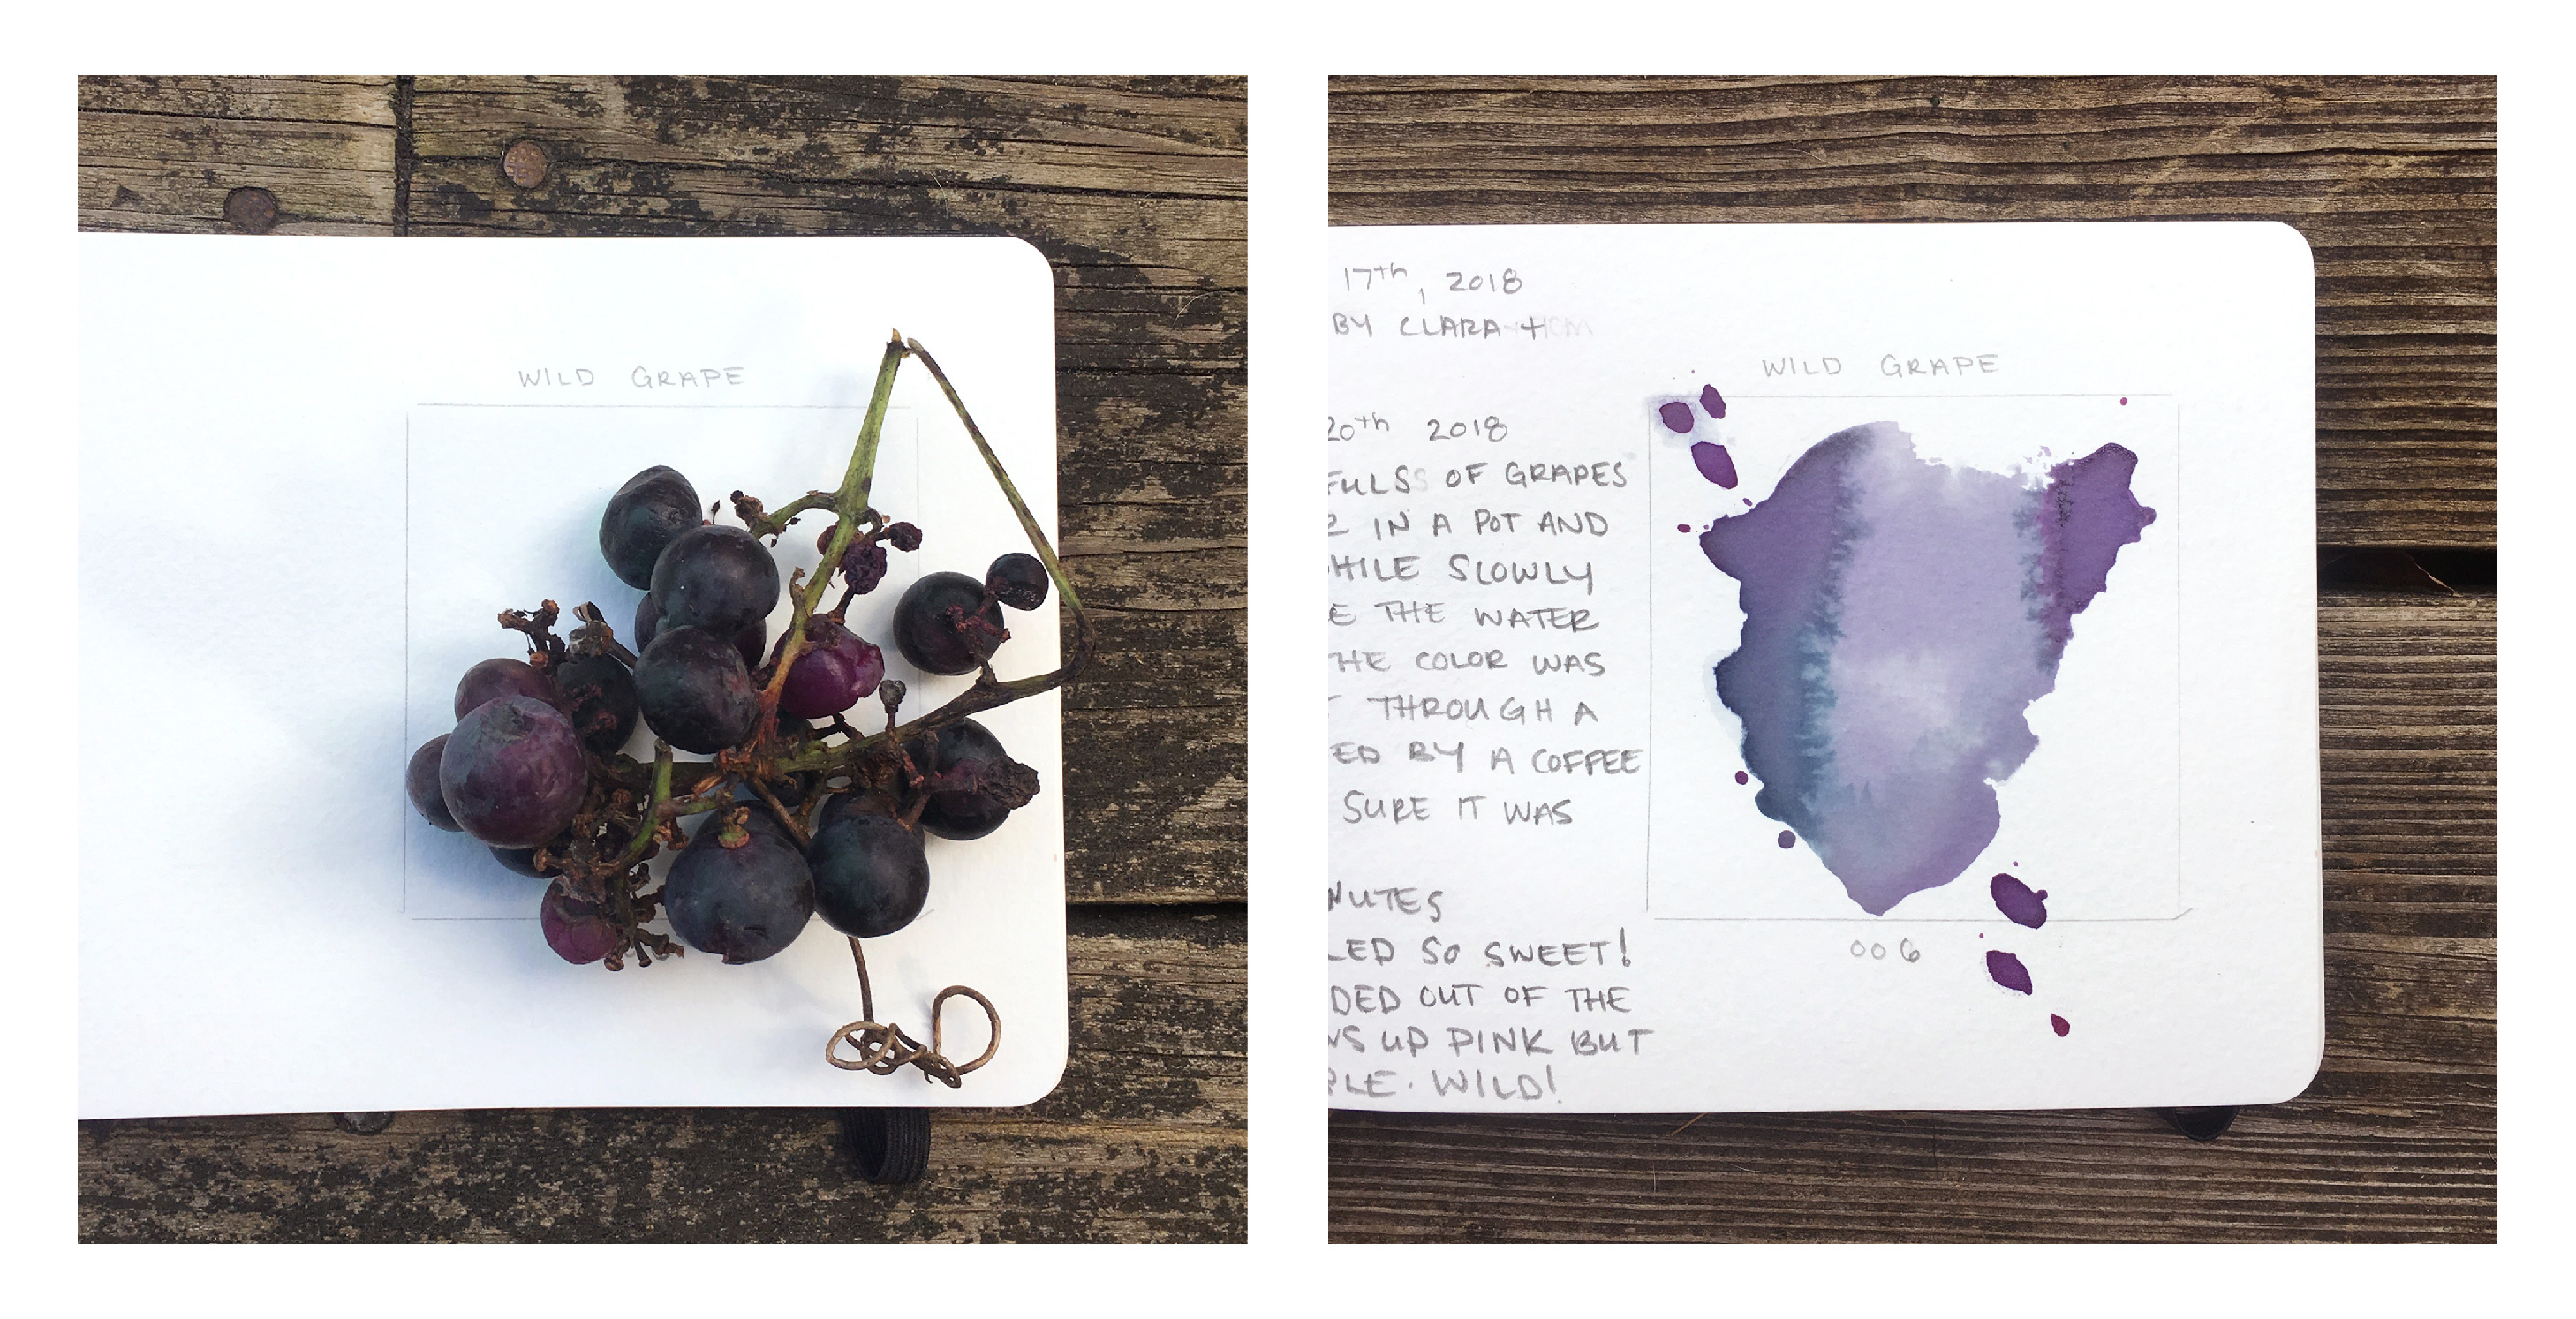 WILD GRAPE
17th, 2018
BY CLARA +
20th 2018
FULSS OF GRAPES
R IN A POT AND
HILE SLOWLY
E THE WATER
HE COLOR WAS
T THROUGH A
ED BY A COFFEE
SURE IT WAS
NUTES
LED SO SWEET!
DED OUT OF THE
WS UP PINK BUT
PLE. WILD!
WILD GRAPE
006